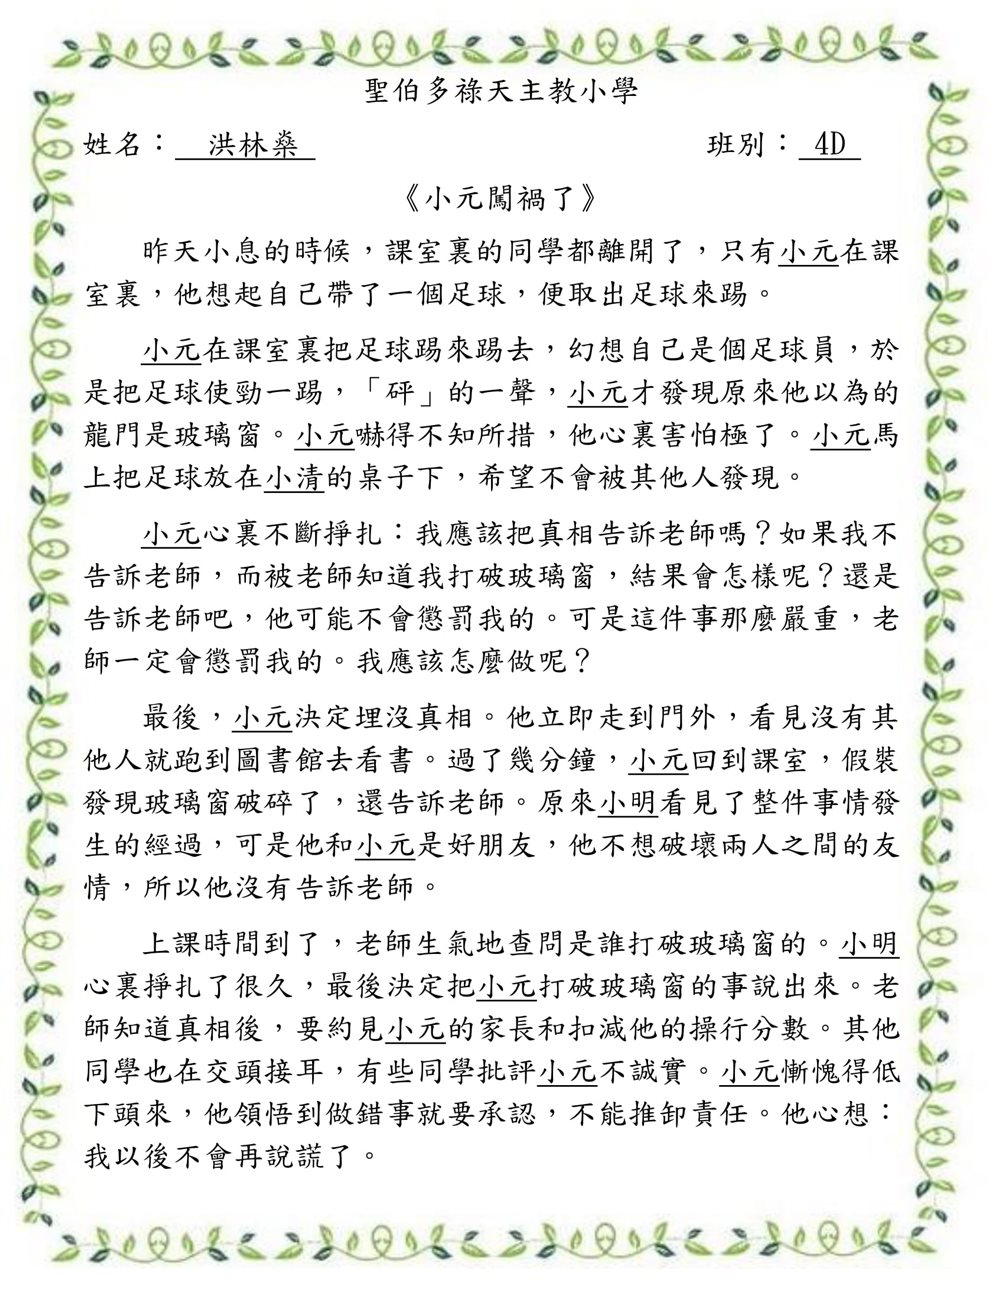 聖伯多祿天主教小學
姓名： 洪林燊 班別： 4D
《小元闖禍了》
昨天小息的時候，課室裏的同學都離開了，只有小元在課
室裏，他想起自己帶了一個足球，便取出足球來踢。
小元在課室裏把足球踢來踢去，幻想自己是個足球員，於
是把足球使勁一踢，「砰」的一聲，小元才發現原來他以為的
龍門是玻璃窗。小元嚇得不知所措，他心裏害怕極了。小元馬
上把足球放在小清的桌子下，希望不會被其他人發現。
小元心裏不斷掙扎：我應該把真相告訴老師嗎？如果我不
告訴老師，而被老師知道我打破玻璃窗，結果會怎樣呢？還是
告訴老師吧，他可能不會懲罰我的。可是這件事那麼嚴重，老
師一定會懲罰我的。我應該怎麼做呢？
最後，小元決定埋沒真相。他立即走到門外，看見沒有其
他人就跑到圖書館去看書。過了幾分鐘，小元回到課室，假裝
發現玻璃窗破碎了，還告訴老師。原來小明看見了整件事情發
生的經過，可是他和小元是好朋友，他不想破壞兩人之間的友
情，所以他沒有告訴老師。
上課時間到了，老師生氣地查問是誰打破玻璃窗的。小明
心裏掙扎了很久，最後決定把小元打破玻璃窗的事說出來。老
師知道真相後，要約見小元的家長和扣減他的操行分數。其他
同學也在交頭接耳，有些同學批評小元不誠實。小元慚愧得低
下頭來，他領悟到做錯事就要承認，不能推卸責任。他心想：
我以後不會再說謊了。